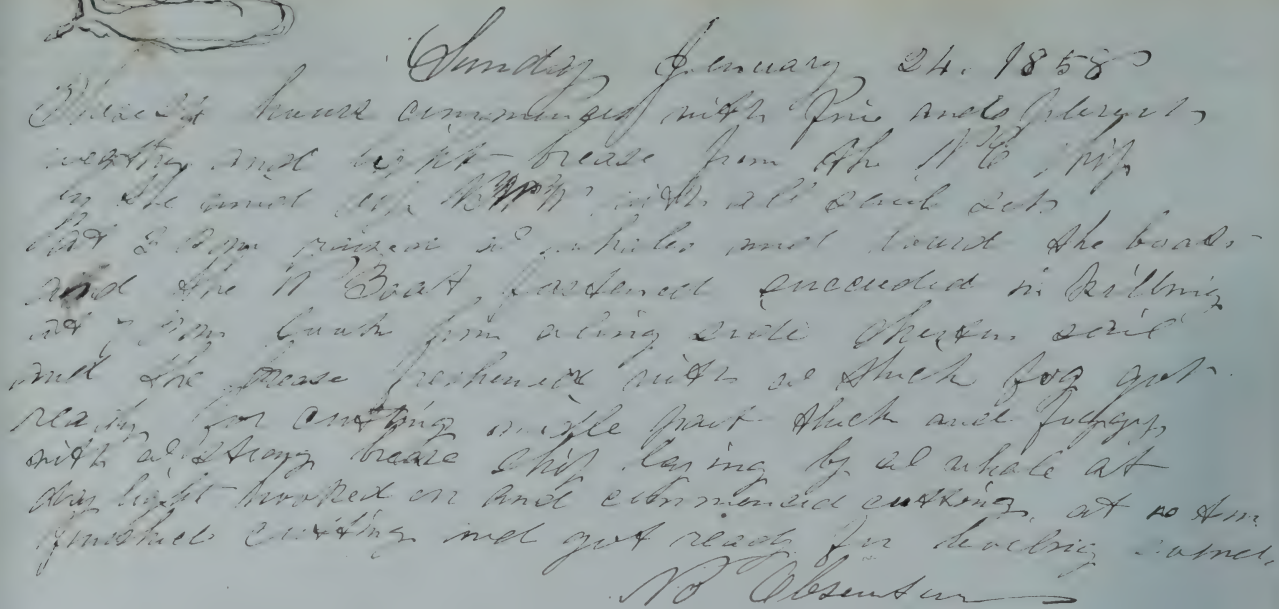 Sunday January 24. 1858
These 24 hours commences with fine and plesant
weather and light brease from the NE ship
by the wind with all sail set
at 2 P.M raised a whale and lowerd the boats
and the W Boat fastened succeeded in killing
at took him along side shorten sail
and the brease freshened with a thick fog got
ready for cutting midle part thick and foggy
with a strong brease ship laying by a whale at
day light hooked on and commenced cutting. at
finished cutting and got ready for boiling
No Observation